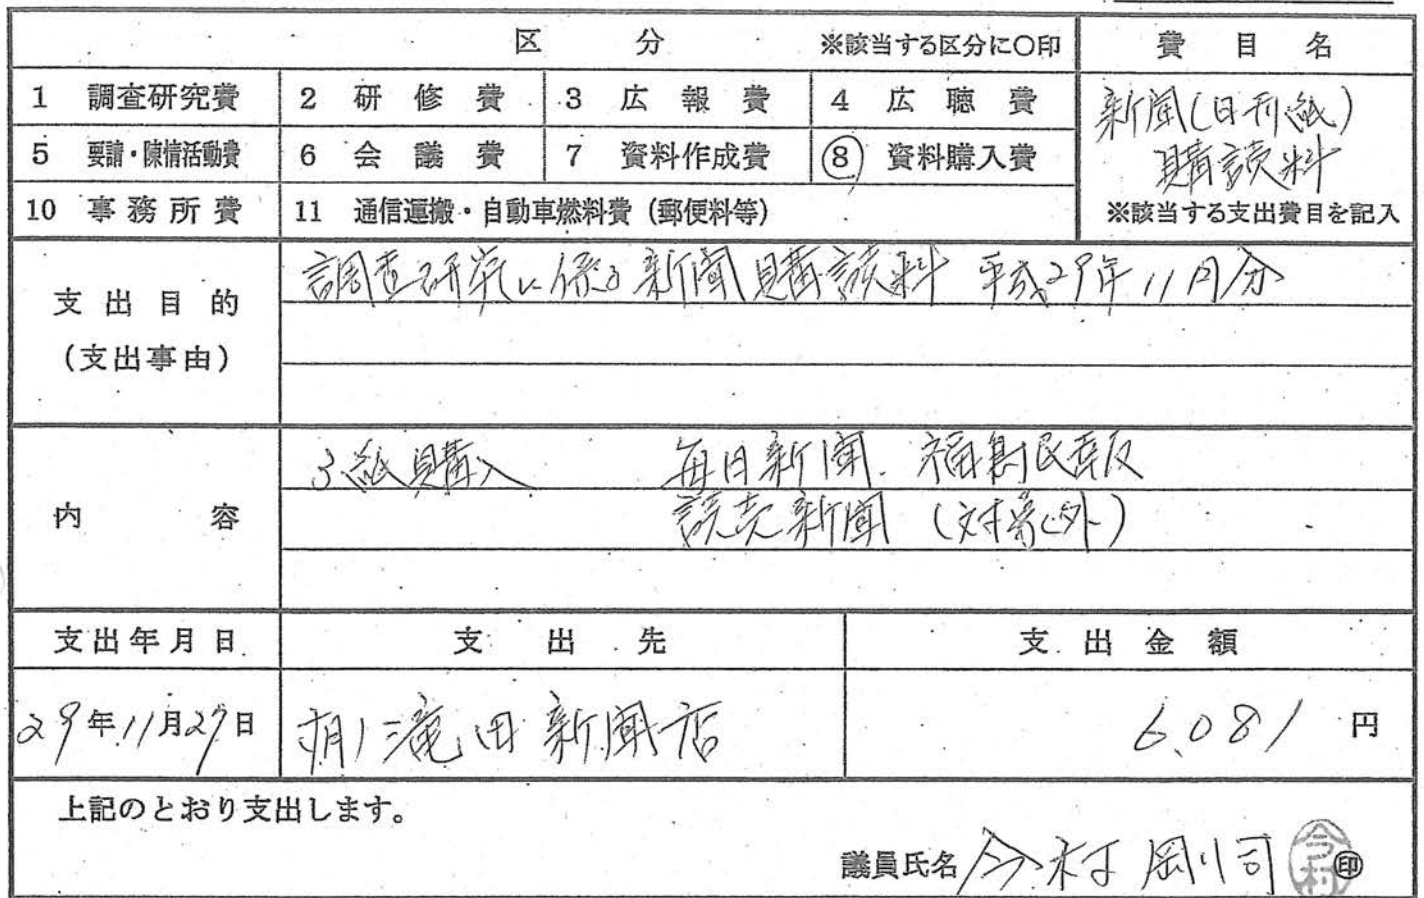 区 分 ※該当する区分に○印 費 目 名
1 調査研究費 2 研 修 費 3 広 報 費 4 広 聴 費
新聞(日刊紙)
5 要請・陳情活動費 6 会 議 費 7 資料作成費 ⑧ 資料購入費
購読料
10 事務所費 11 通信運搬・自動車燃料費(郵便料等) ※該当する支出費目を記入
支出目的
(支出事由)
調査研究に係る新聞購読料 平成29年11月分
内 容
3紙購入 毎日新聞. 福島民報
読売新聞 (対象外)
支出年月日 支 出 先 支 出 金 額
29年11月27日 滝田新聞店 6,081 円
上記のとおり支出します。
議員氏名 今村剛司 ㊞
今村